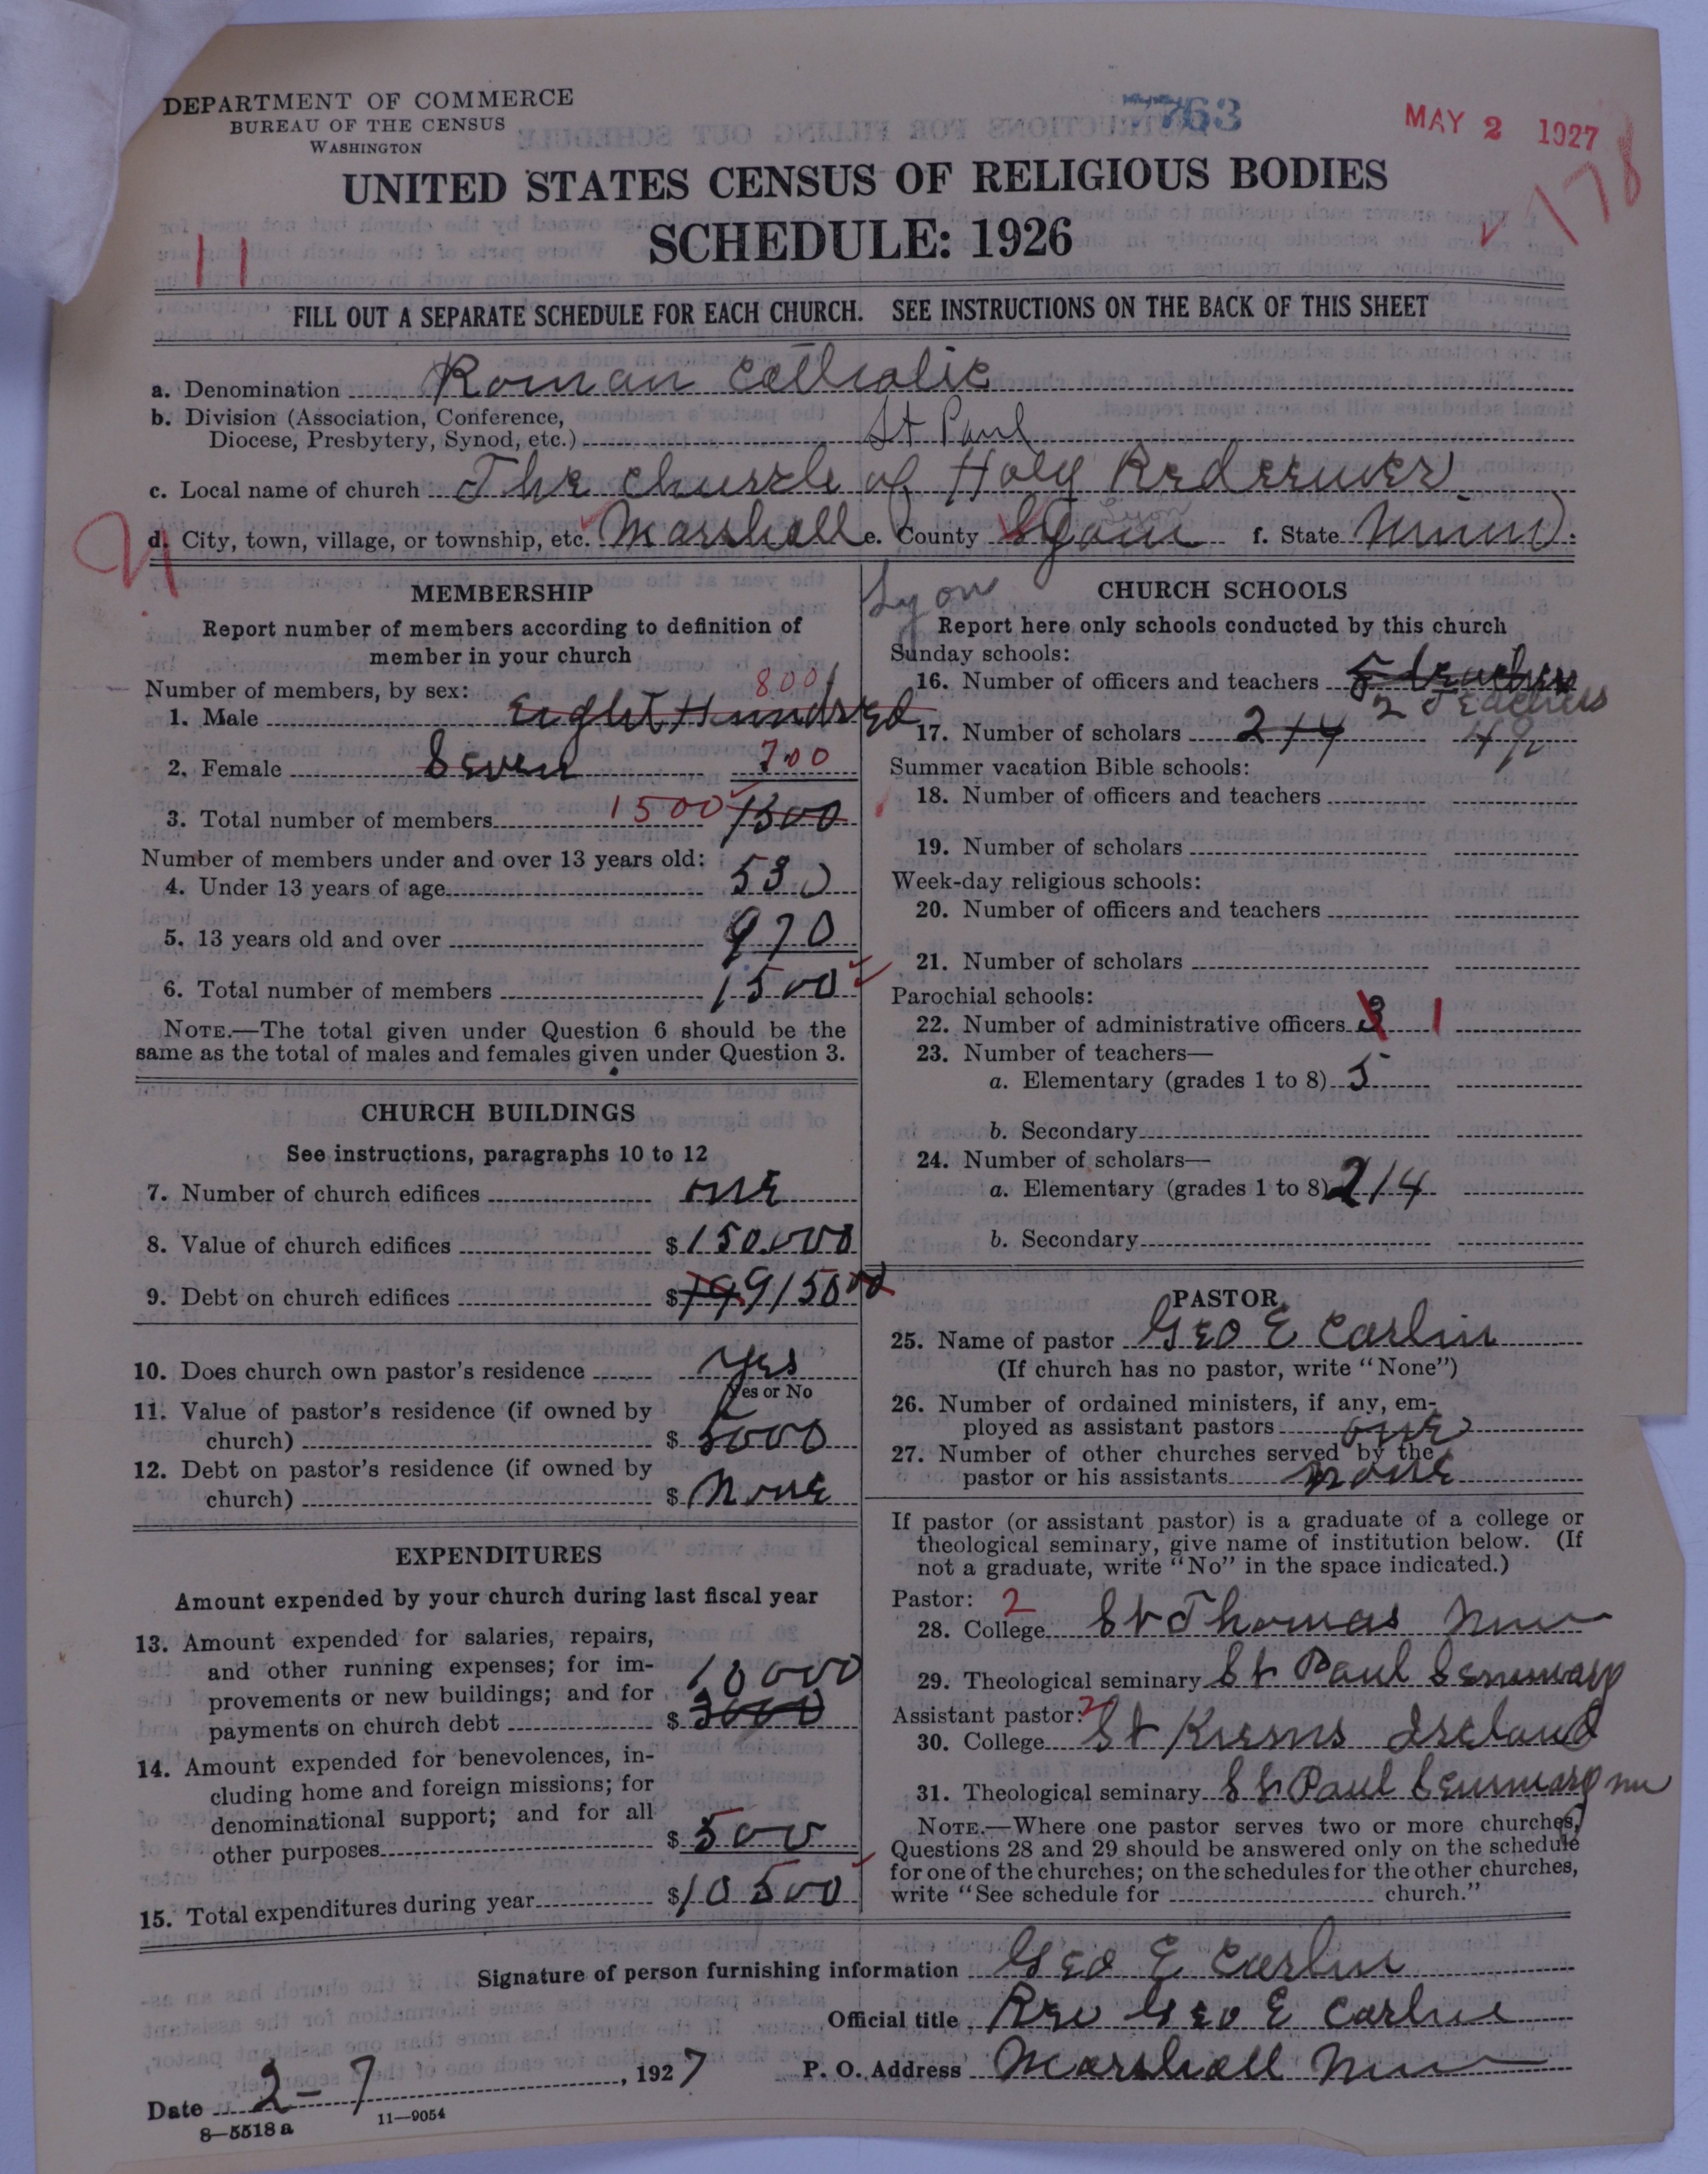 DEPARTMENT OF COMMERCE
BUREAU OF THE CENSUS
WASHINGTON
7763
MAY 2 1927
178
UNITED STATES CENSUS OF RELIGIOUS BODIES
SCHEDULE: 1926
11
FILL OUT A SEPARATE SCHEDULE FOR EACH CHURCH. SEE INSTRUCTIONS ON THE BACK OF THIS SHEET
a. Denomination Roman Catholic
b. Division (Association, Conference,
Diocese, Presbytery, Synod, etc.) St Paul
c. Local name of church The Church of Holy Redeemer
d. City, town, village, or township, etc. Marshall e. County Lyon f. State Minn
Lyon
MEMBERSHIP
Report number of members according to definition of
member in your church
Number of members, by sex:
1. Male Eight Hundred 800
2. Female Seven 700
3. Total number of members 1500 1500
Number of members under and over 13 years old:
4. Under 13 years of age 530
5. 13 years old and over 970
6. Total number of members 1500
NOTE.—The total given under Question 6 should be the
same as the total of males and females given under Question 3.
CHURCH BUILDINGS
See instructions, paragraphs 10 to 12
7. Number of church edifices one
8. Value of church edifices $150.000
9. Debt on church edifices $ 9150
10. Does church own pastor's residence yes
Yes or No
11. Value of pastor's residence (if owned by
church) $ 5000
12. Debt on pastor's residence (if owned by
church) $ None
EXPENDITURES
Amount expended by your church during last fiscal year
13. Amount expended for salaries, repairs,
and other running expenses; for im-
provements or new buildings; and for 10000
payments on church debt $ 3000
14. Amount expended for benevolences, in-
cluding home and foreign missions; for
denominational support; and for all
other purposes $ 500
15. Total expenditures during year $10500
CHURCH SCHOOLS
Report here only schools conducted by this church
Sunday schools:
16. Number of officers and teachers 5 teachers
2 Teachers
17. Number of scholars 214 42
Summer vacation Bible schools:
18. Number of officers and teachers
19. Number of scholars
Week-day religious schools:
20. Number of officers and teachers
21. Number of scholars
Parochial schools:
22. Number of administrative officers 3 1
23. Number of teachers—
a. Elementary (grades 1 to 8) 5
b. Secondary
24. Number of scholars—
a. Elementary (grades 1 to 8) 214
b. Secondary
PASTOR
25. Name of pastor Geo E Carlin
(If church has no pastor, write "None")
26. Number of ordained ministers, if any, em-
ployed as assistant pastors one
27. Number of other churches served by the
pastor or his assistants none
If pastor (or assistant pastor) is a graduate of a college or
theological seminary, give name of institution below. (If
not a graduate, write "No" in the space indicated.)
Pastor: 2
28. College St Thomas Minn
29. Theological seminary St Paul Seminary
Assistant pastor: 2
30. College St Ireland
31. Theological seminary St Paul Seminary
NOTE.—Where one pastor serves two or more churches,
Questions 28 and 29 should be answered only on the schedule
for one of the churches; on the schedules for the other churches,
write "See schedule for church."
Signature of person furnishing information Geo E Carlin
Official title Rev Geo E Carlin
Date 2-7, 1927 P. O. Address Marshall Minn
8—5518 a 11—9054